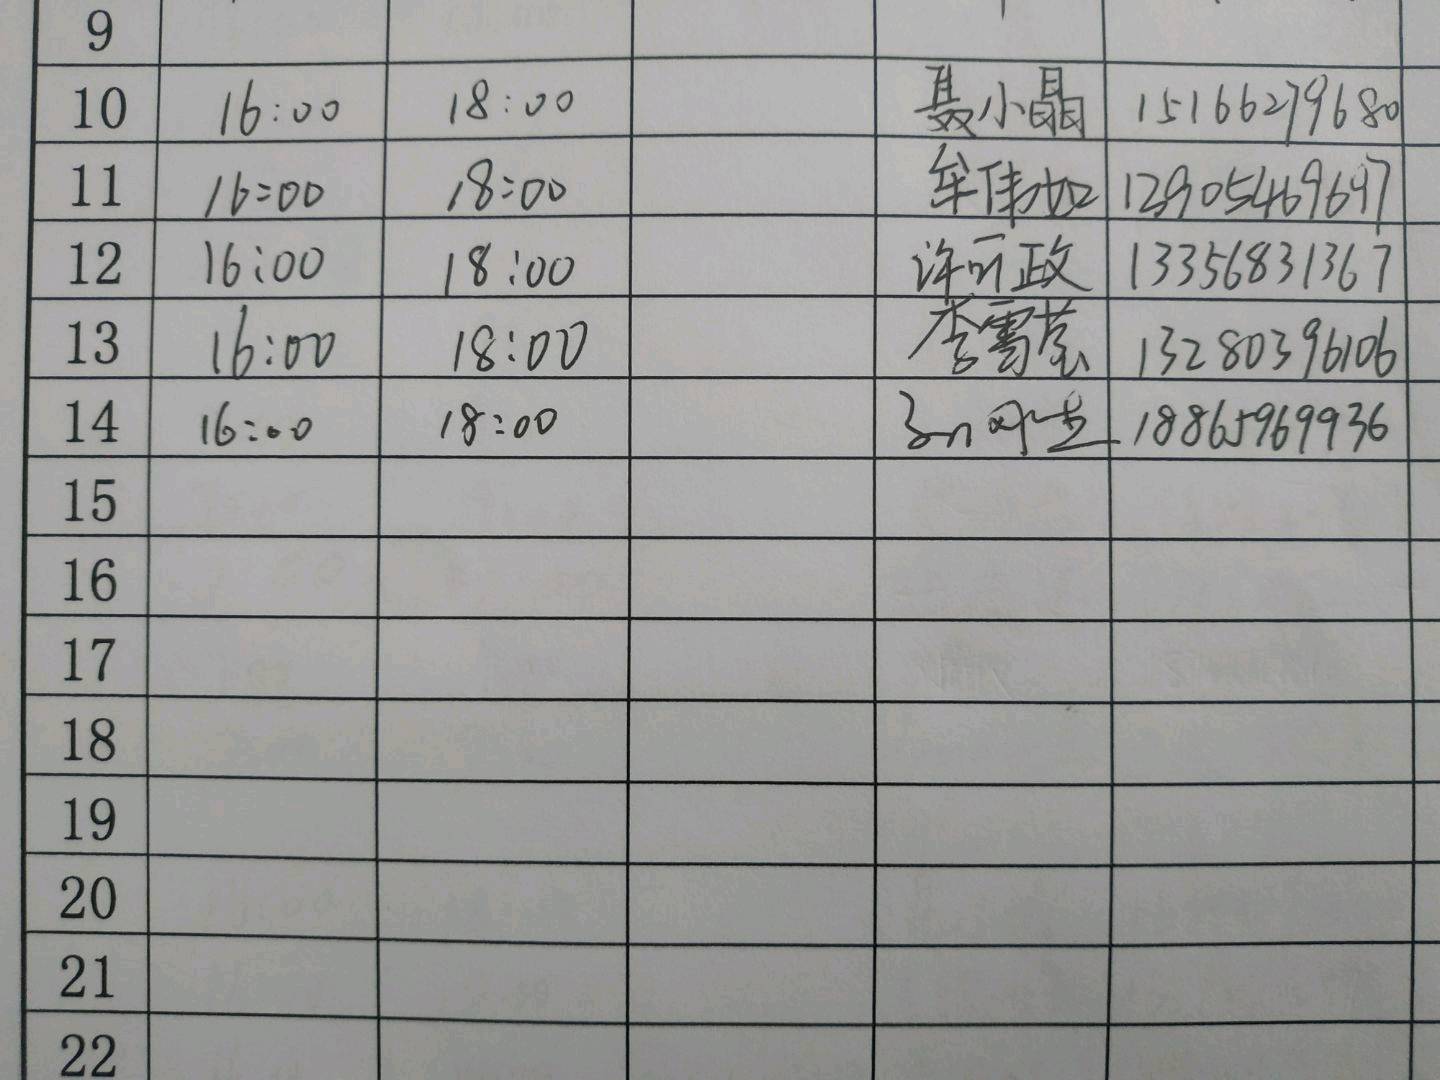 9
10 16:00 18:00 聂小晶 15166279680
11 16:00 18:00 牟伟如 12905469697
12 16:00 18:00 许可政 13356831367
13 16:00 18:00 李雪莹 13280396106
14 16:00 18:00 18865969936
15
16
17
18
19
20
21
22